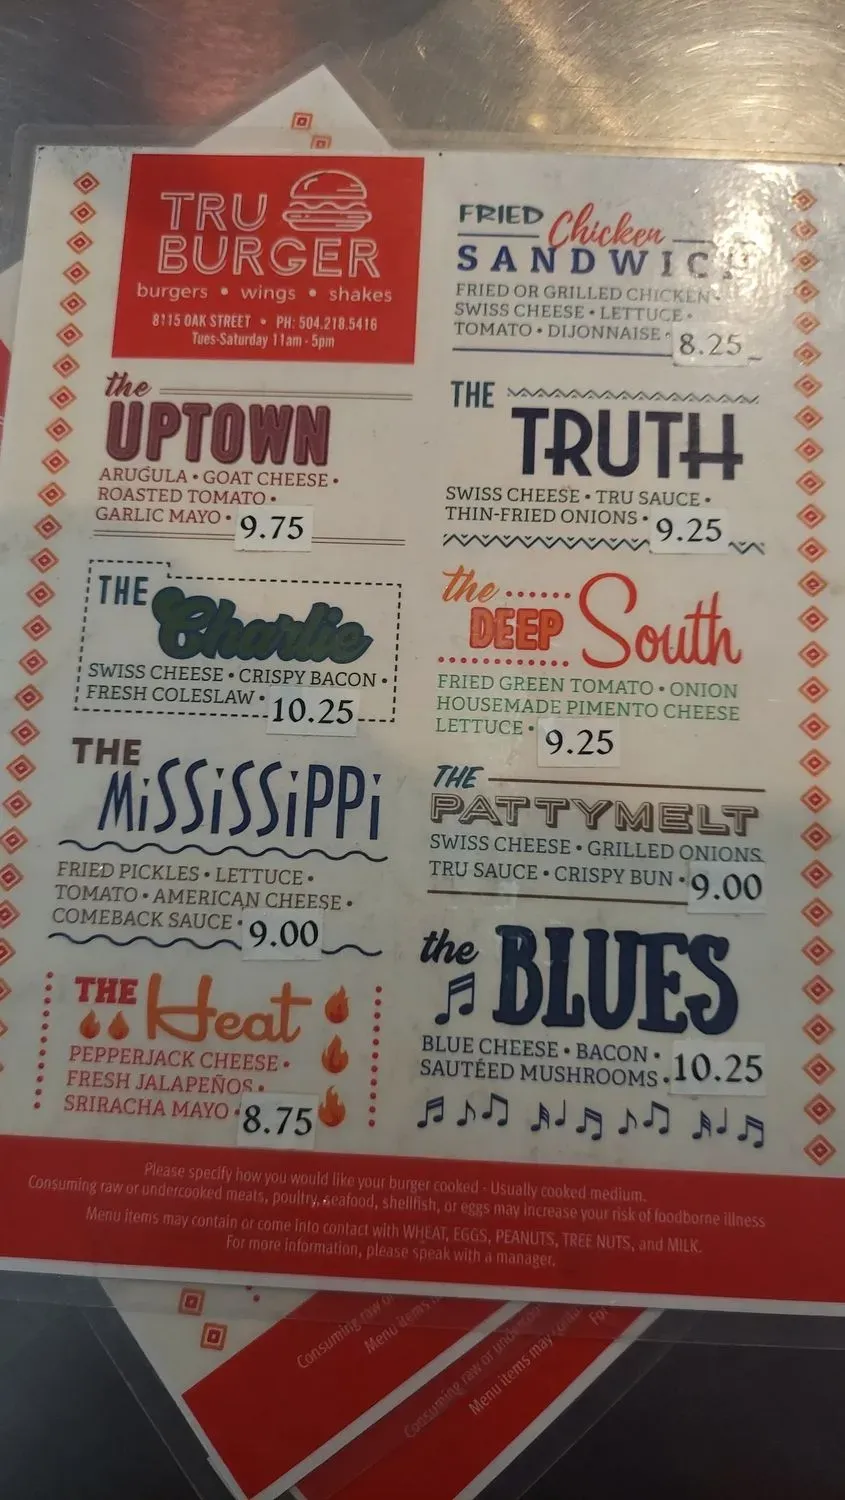 TRU
BURGER
burgers • wings • shakes
8115 OAK STREET • PH: 504.218.5416
Tues-Saturday 11am - 5pm
the
UPTOWN
ARUGULA • GOAT CHEESE •
ROASTED TOMATO •
GARLIC MAYO • 9.75
THE
Charlie
SWISS CHEESE • CRISPY BACON •
FRESH COLESLAW • 10.25
THE
MiSSiSSiPPi
FRIED PICKLES • LETTUCE •
TOMATO • AMERICAN CHEESE •
COMEBACK SAUCE • 9.00
THE
Heat
PEPPERJACK CHEESE •
FRESH JALAPEÑOS •
SRIRACHA MAYO • 8.75
FRIED Chicken
SANDWICH
FRIED OR GRILLED CHICKEN •
SWISS CHEESE • LETTUCE •
TOMATO • DIJONNAISE • 8.25
THE
TRUTH
SWISS CHEESE • TRU SAUCE •
THIN-FRIED ONIONS • 9.25
the
DEEP South
FRIED GREEN TOMATO • ONION
HOUSEMADE PIMENTO CHEESE
LETTUCE • 9.25
THE
PATTYMELT
SWISS CHEESE • GRILLED ONIONS
TRU SAUCE • CRISPY BUN • 9.00
the
BLUES
BLUE CHEESE • BACON •
SAUTÉED MUSHROOMS • 10.25
Please specify how you would like your burger cooked - Usually cooked medium.
Consuming raw or undercooked meats, poultry, seafood, shellfish, or eggs may increase your risk of foodborne illness
Menu items may contain or come into contact with WHEAT, EGGS, PEANUTS, TREE NUTS, and MILK.
For more information, please speak with a manager.
Consuming raw or
Menu items
Consuming raw or
Menu items may